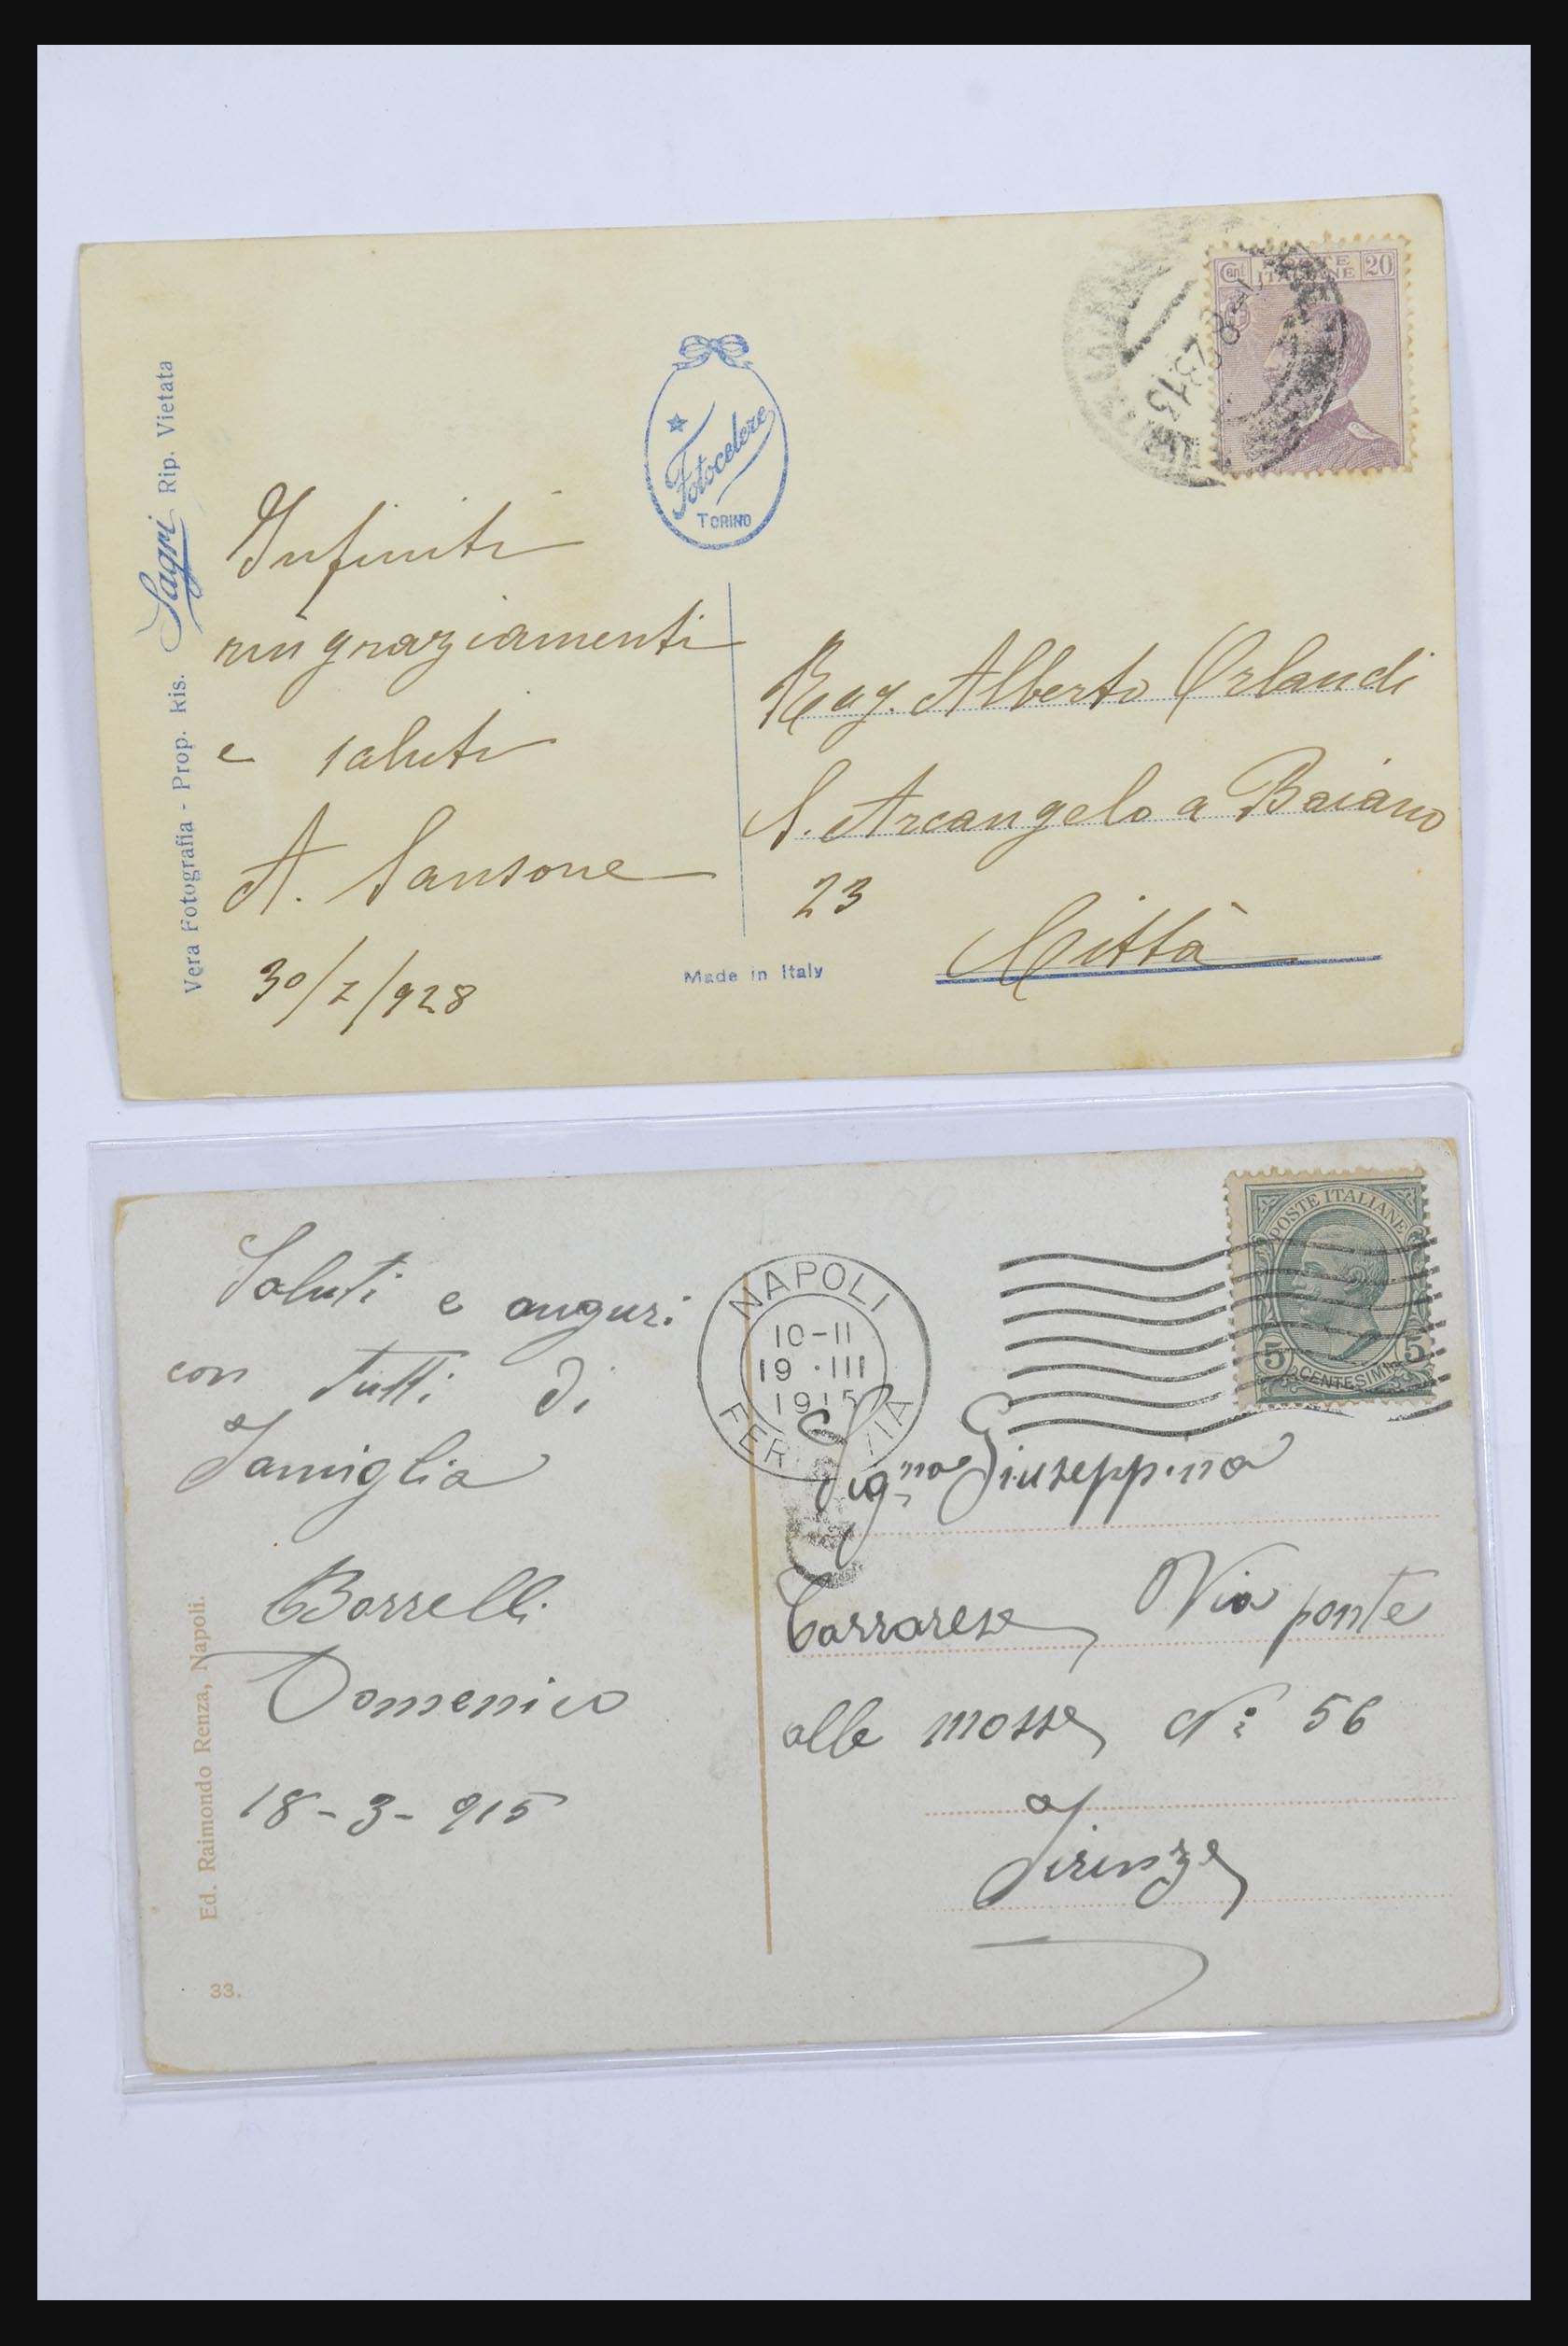 Cent POSTE ITALIANE 20
Fotocelere
TORINO
Vera Fotografia - Prop. Ris. Sagri Rip. Vietata
Infiniti
ringraziamenti
e saluti
A. Sansone
30/7/928
Rag. Alberto Orlandi
S. Arcangelo a Baiano
23
Città
Made in Italy
POSTE ITALIANE
5 CENTESIMI 5
NAPOLI
10-11
19 · III
1915
FERROVIA
Saluti e auguri
con tutti di
Famiglia
Borrelli
Domenico
18-3-915
Sig.na Giuseppina
Carrarese Via ponte
alle mosse N: 56
Firenze
Ed. Raimondo Renza, Napoli.
33.